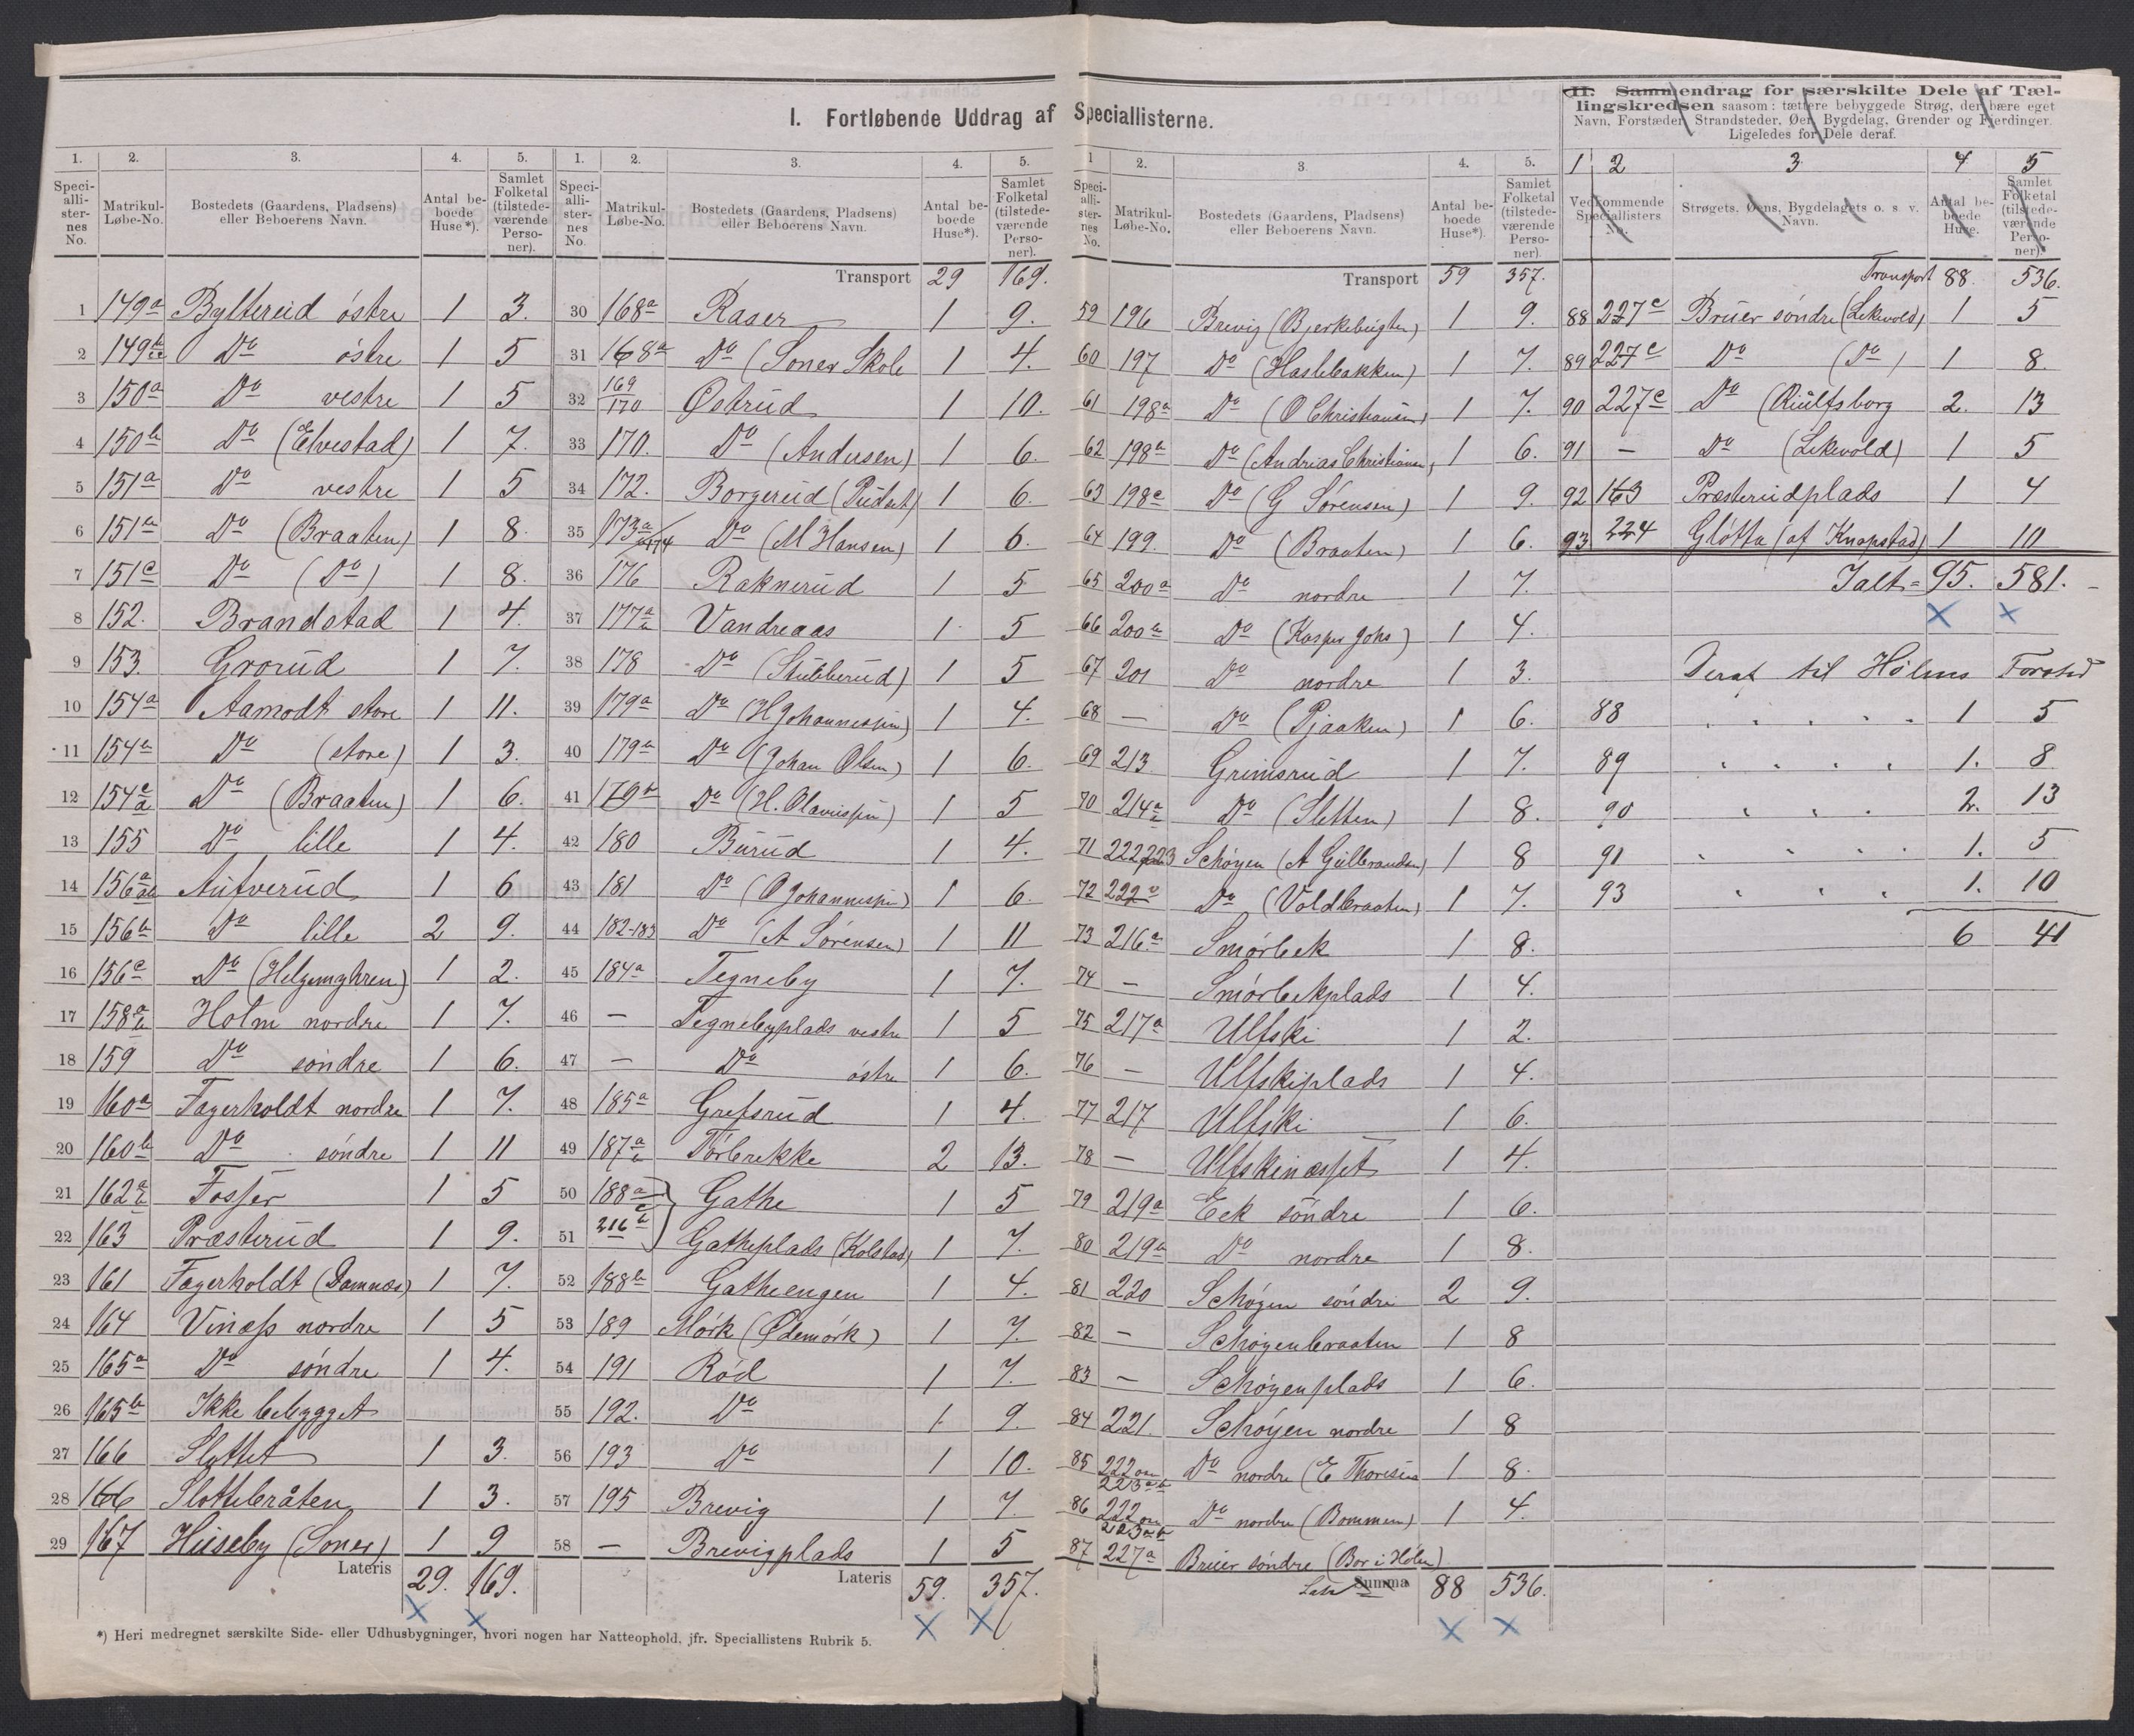 I. Fortløbende Uddrag af Speciallisterne.
1. 2. 3. 4. 5.
Specialli-ster-nes No. Matrikul-Løbe-No. Bostedets (Gaardens, Pladsens) eller Beboerens Navn. Antal be-boede Huse*). Samlet Folketal (tilstede-værende Perso-ner).
1 149a Byltereid östre 1 3.
2 149b Do östre 1 5
3 150a Do vestre 1 5
4 150b Do (Elvestad) 1 7.
5 151a Do vestre 1 5
6 151b Do (Braaten) 1 8.
7 151c Do (Do) 1 8.
8 152. Brandstad 1 4.
9 153. Grorud 1 7.
10 154a Aamodt store 1 11.
11 154b Do (store) 1 3.
12 154c Do (Braaten) 1 6.
13 155 Do lille 1 4.
14 156a Aufverud 1 6
15 156b Do lille 2 9.
16 156c Do 1 2.
17 158a Holm nordre 1 7.
18 159 Do söndre 1 6.
19 160a Fagerholdt nordre 1 7.
20 160b Do söndre 1 11
21 162a Fosser 1 5
22 163 Præsterud 1 9.
23 161 Fagerholdt (Damnæs) 1 7.
24 164 Vinæss nordre 1 5
25 165a Do söndre 1 4.
26 165b Ikke bebygget
27 166 Slottet 1 3.
28 166 Slottebråten 1 3.
29 167 Huseby (Soner) 1 9
Lateris 29. 169.
1. 2. 3. 4. 5.
Specialli-ster-nes No. Matrikul-Løbe-No. Bostedets (Gaardens, Pladsens) eller Beboerens Navn. Antal be-boede Huse*). Samlet Folketal (tilstede-værende Perso-ner).
Transport 29 169.
30 168a Raser 1 9.
31 168a Do (Soner Skole 1 4.
32 169 170 Østrud 1 10.
33 170. Do (Andersen) 1 6.
34 172. Borgerud (Pudset) 1 6.
35 173a 174 Do (M Hansen) 1 6.
36 176 Raknerud 1 5
37 177a Vandreaas 1 5
38 178 Do (Stubberud) 1 5
39 179a Do (H Johannessen) 1 4.
40 179b Do (Johan Olsen) 1 6.
41 179b Do (H. Olavessen) 1 5
42 180 Burud 1 4.
43 181 Do (O Johannessen) 1 6.
44 182-183 Do (A Sörensen) 1 11
45 184a Tegneby 1 7.
46 — Tegnebyplads vestre 1 5
47 — Do östre 1 6.
48 185a Grefsrud 1 4.
49 187a Törbrekke 2 13.
50 188a Gathe 1 5
51 216b Gatheplads (Kolstad) 1 7.
52 188b Gatheengen 1 4.
53 189 Mörk (Ødemörk) 1 7.
54 191 Röd 1 7.
55 192. Do 1 9.
56 193 Do 1 10.
57 195 Brevig 1 7.
58 — Brevigplads 1 5
Lateris 59. 357.
1 2. 3. 4. 5.
Speci-alli-ster-nes No. Matrikul-Løbe-No. Bostedets (Gaardens, Pladsens) eller Beboerens Navn. Antal be-boede Huse*). Samlet Folketal (tilstede-værende Perso-ner)
Transport 59 357.
59 196 Brevig (Bjerkebugten) 1 9.
60 197 Do (Haslebakken) 1 7.
61 198a Do (O Christiansen) 1 7.
62 198a Do (Andrias Christiansen) 1 6.
63 198c Do (G Sörensen) 1 9.
64 199. Do (Braaten) 1 6.
65 200a Do nordre 1 7.
66 200b Do (Kasper Johs) 1 4.
67 201 Do nordre 1 3.
68 — Do (Pjaaken) 1 6.
69 213 Grimsrud 1 7.
70 214a Do (Sletten) 1 8.
71 222 223 Schöyen (A Gulbrandsen) 1 8
72 222c Do (Voldbraaten) 1 7.
73 216a Smörbek 1 8.
74 — Smörbekplads 1 4.
75 217a Ulfski 1 2.
76 — Ulfskiplads 1 4.
77 217 Ulfski 1 6.
78 — Ulfskinæsset 1 4.
79 219a Eek söndre 1 6.
80 219b Do nordre 1 8.
81 220 Schöyen söndre 2 9.
82 — Schöyenbraaten 1 8
83 — Schöyenplads 1 6.
84 221. Schöyen nordre 1 8
85 222 223 Do nordre (E Thoresen 1 8.
86 222 223 Do nordre (Bommen) 1 4.
87 227a Bruer söndre (Bor i Hölen)
Summa 88 536.
II. Sammendrag for særskilte Dele af Tæl-
lingskredsen saasom: tættere bebyggede Strøg, der bære eget
Navn, Forstæder, Strandsteder, Øer, Bygdelag, Grender og Fjerdinger.
Ligeledes for Dele deraf.
1 2 3 4 5
Vedkommende Speciallisters No. Strøgets, Øens, Bygdelagets o. s. v. Navn. Antal be-boede Huse. Samlet Folketal (tilstede-værende Perso-ner).
Transport 88. 536.
88 227c Bruer söndre (Lekevold) 1 5
89 227c Do (Do) 1 8.
90 227c Do (Riulfsborg 2. 13
91 — Do (Lekevold) 1 5
92 163 Præsterudplads 1 4
93 224 Glötta (af Knapstad) 1 10
Ialt = 95. 581.
Deraf til Hölens Forsted
88 1 5
89 1. 8.
90 2. 13
91 1. 5
93 1. 10
6 41
*) Heri medregnet særskilte Side- eller Udhusbygninger, hvori nogen har Natteophold, jfr. Speciallistens Rubrik 5.